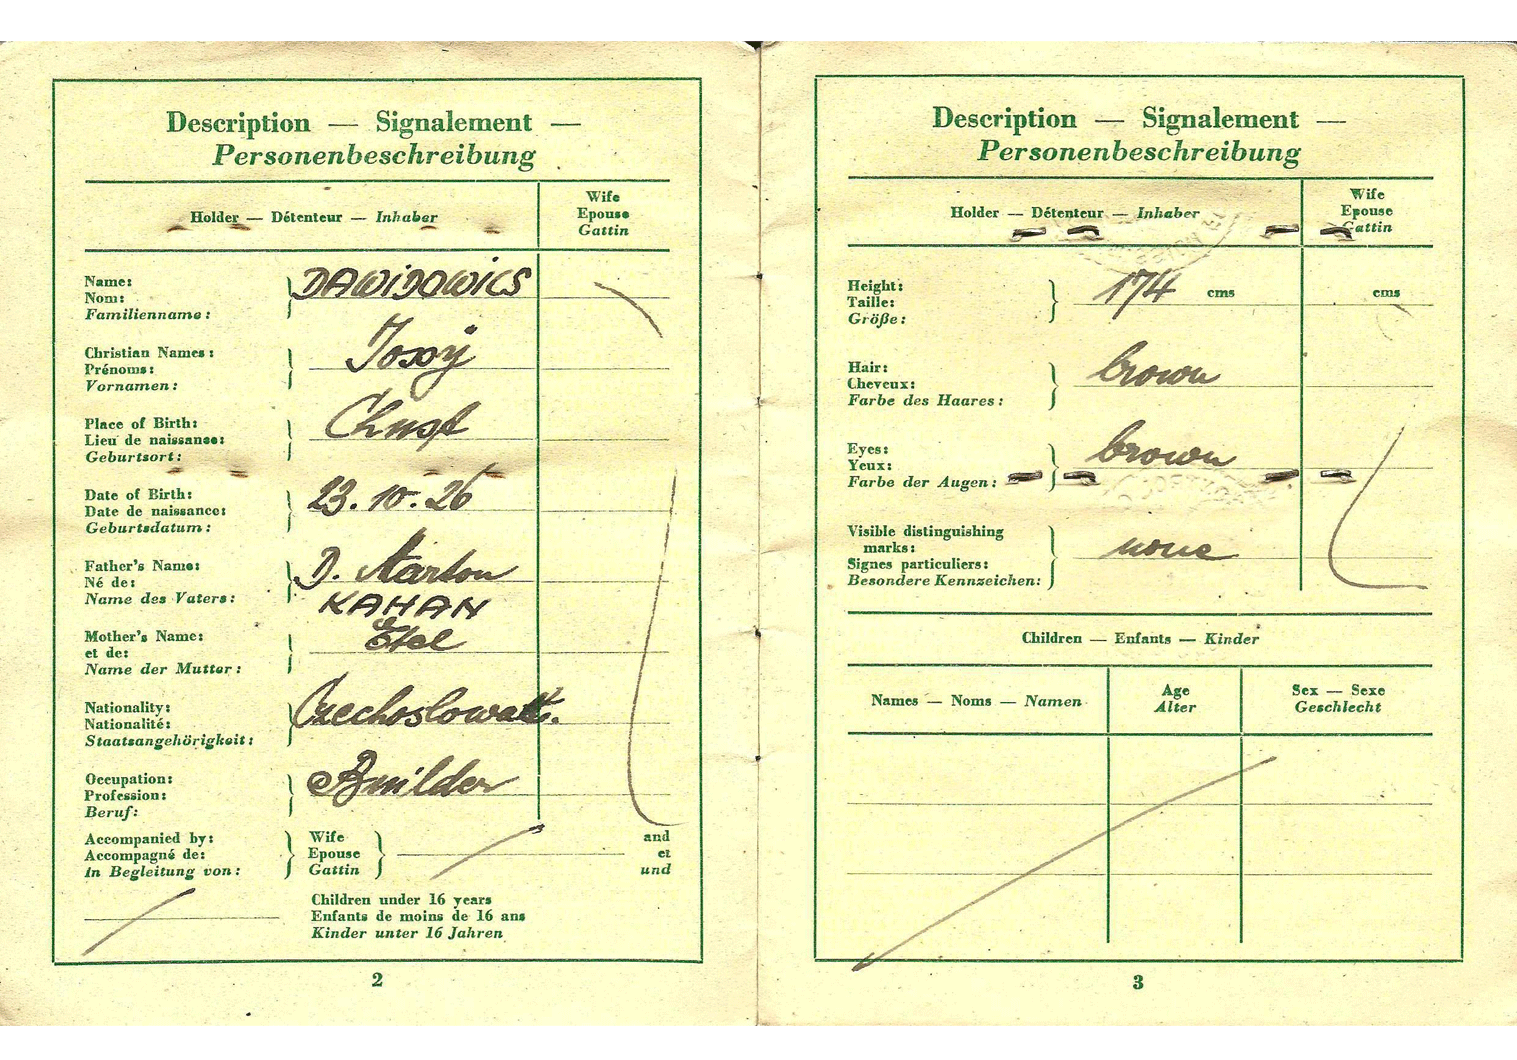 Description — Signalement —
Personenbeschreibung
Holder — Détenteur — Inhaber
Wife
Epouse
Gattin
Name:
Nom:
Familienname:
DAWIDOWICS
Christian Names:
Prénoms:
Vornamen:
Jossy
Place of Birth:
Lieu de naissance:
Geburtsort:
Chust
Date of Birth:
Date de naissance:
Geburtsdatum:
23.10.26
Father's Name:
Né de:
Name des Vaters:
D. Marton
KAHAN
Mother's Name:
et de:
Name der Mutter:
Etel
Nationality:
Nationalité:
Staatsangehörigkeit:
Czechoslowak.
Occupation:
Profession:
Beruf:
Builder
Accompanied by:
Accompagné de:
In Begleitung von:
Wife
Epouse
Gattin
and
et
und
Children under 16 years
Enfants de moins de 16 ans
Kinder unter 16 Jahren
2
Description — Signalement —
Personenbeschreibung
Holder — Détenteur — Inhaber
Wife
Epouse
Gattin
Height:
Taille:
Größe:
174 cms
cms
Hair:
Cheveux:
Farbe des Haares:
brown
Eyes:
Yeux:
Farbe der Augen:
brown
Visible distinguishing
marks:
Signes particuliers:
Besondere Kennzeichen:
none
Children — Enfants — Kinder
Names — Noms — Namen
Age
Alter
Sex — Sexe
Geschlecht
3